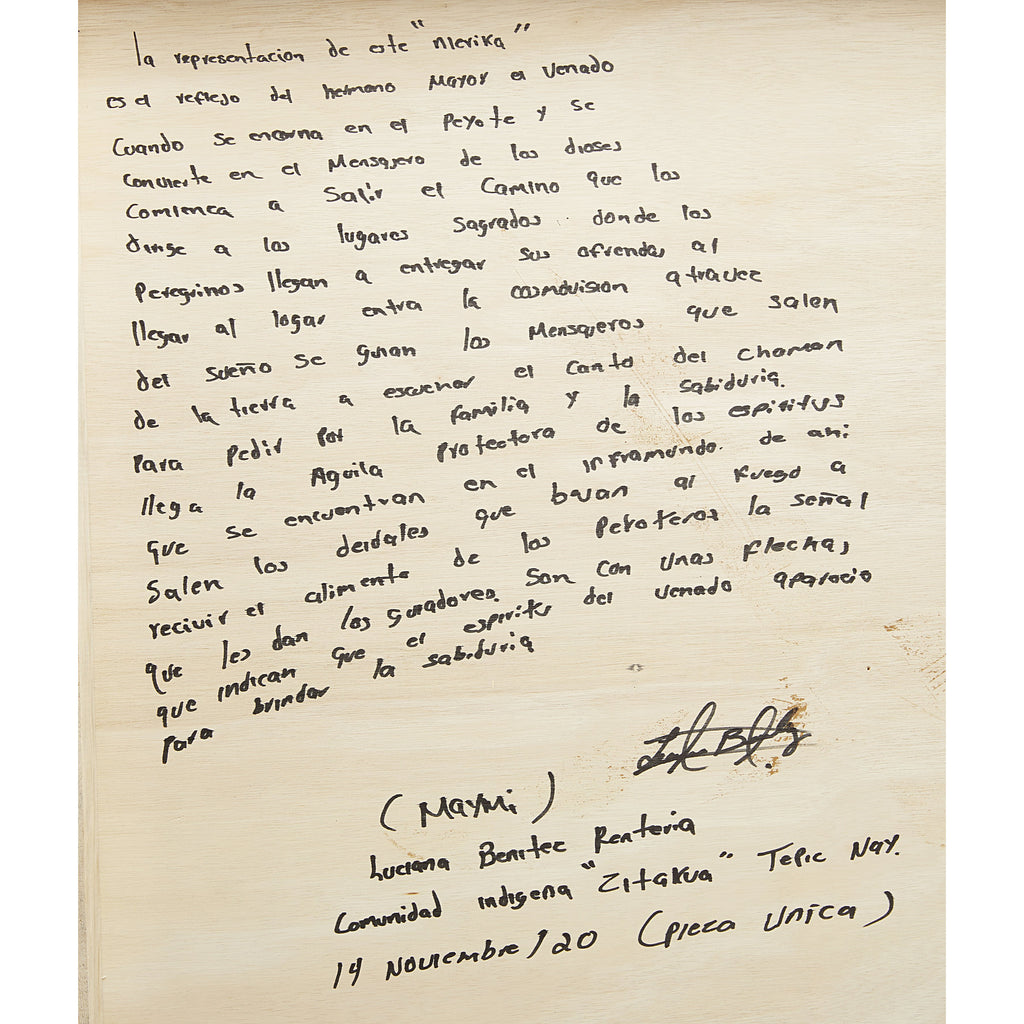 la representacion de este "Nierika"
es el reflejo del hermano Mayor el Venado
Cuando se encarna en el Peyote y se
Concierte en el Mensajero de los dioses
Comienca a Salir el Camino que los
dirige a los lugares Sagrados donde los
Peregrinos llegan a entregar sus ofrendas al
llegar al logar entra la cosmovision atravez
del sueño Se guian los Mensajeros que salen
de la tierra a escuchar el Canto del Chaman
Para Pedir Por la familia y la Sabiduria.
llega la Aguila Protectora de los espiritus
que se encuentran en el inframundo. de ahi
Salen los deidales que bajan al fuego a
recivir el alimento de los Peyoteros la Señal
que les dan los guiadores. Son con Unas flechas
que indican que el espiritu del venado aparocio
Para brindar la sabiduria
(Maymi)
Luciana Benitez Renteria
Comunidad indigena "Zitakua" Tepic Nay.
14 Noviembre / 20 (Pieza Unica)